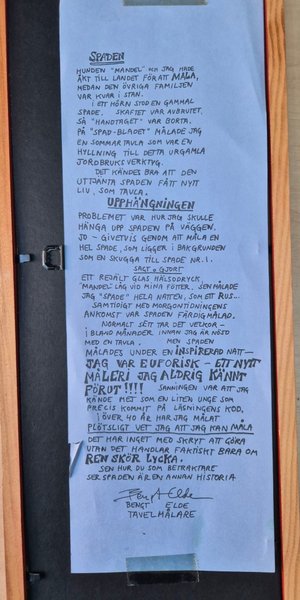 SPADEN
HUNDEN "MANDEL" OCH JAG HADE
ÅKT TILL LANDET FÖR ATT MÅLA,
MEDAN DEN ÖVRIGA FAMILJEN
VAR KVAR I STAN.
I ETT HÖRN STOD EN GAMMAL
SPADE, SKAFTET VAR AVBRUTET,
SÅ "HANDTAGET" VAR BORTA.
PÅ "SPAD-BLADET" MÅLADE JAG
EN SOMMARTAVLA SOM VAR EN
HYLLNING TILL DETTA URGAMLA
JORDBRUKSVERKTYG.
DET KÄNDES BRA ATT DEN
UTTJÄNTA SPADEN FÅTT NYTT
LIV, SOM TAVLA.
UPPHÄNGNINGEN
PROBLEMET VAR HUR JAG SKULLE
HÄNGA UPP SPADEN PÅ VÄGGEN.
JO - GIVETVIS GENOM ATT MÅLA EN
HEL SPADE, SOM LIGGER I BAKGRUNDEN
SOM EN SKUGGA TILL SPADE NR. 1.
SAGT O GJORT
ETT REJÄLT GLAS HÄLSODRYCK,
"MANDEL" LÅG VID MINA FÖTTER. SEN MÅLADE
JAG "SPADE" HELA NATTEN, SOM ETT RUS...
SAMTIDIGT MED MORGONTIDNINGENS
ANKOMST VAR SPADEN FÄRDIGMÅLAD.
NORMALT SETT TAR DET VECKOR -
I BLAND MÅNADER INNAN JAG ÄR NÖJD
MED EN TAVLA. MEN SPADEN
MÅLADES UNDER EN INSPIRERAD NATT -
JAG VAR EUFORISK - ETT NYTT
MÅLERI JAG ALDRIG KÄNNT
FÖRUT !!!! SANNINGEN VAR ATT JAG
KÄNDE MET SOM EN LITEN UNGE SOM
PRECIS KOMMIT PÅ LÄSNINGENS KOD.
I ÖVER 40 ÅR HAR JAG MÅLAT
PLÖTSLIGT VET JAG ATT JAG KAN MÅLA
DET HAR INGET MED SKRYT ATT GÖRA
UTAN DET HANDLAR FAKTISKT BARA OM
REN SKÖR LYCKA.
SEN HUR DU SOM BETRAKTARE
SER SPADEN ÄR EN ANNAN HISTORIA
Bengt Elde
BENGT ELDE
TAVELMÅLARE